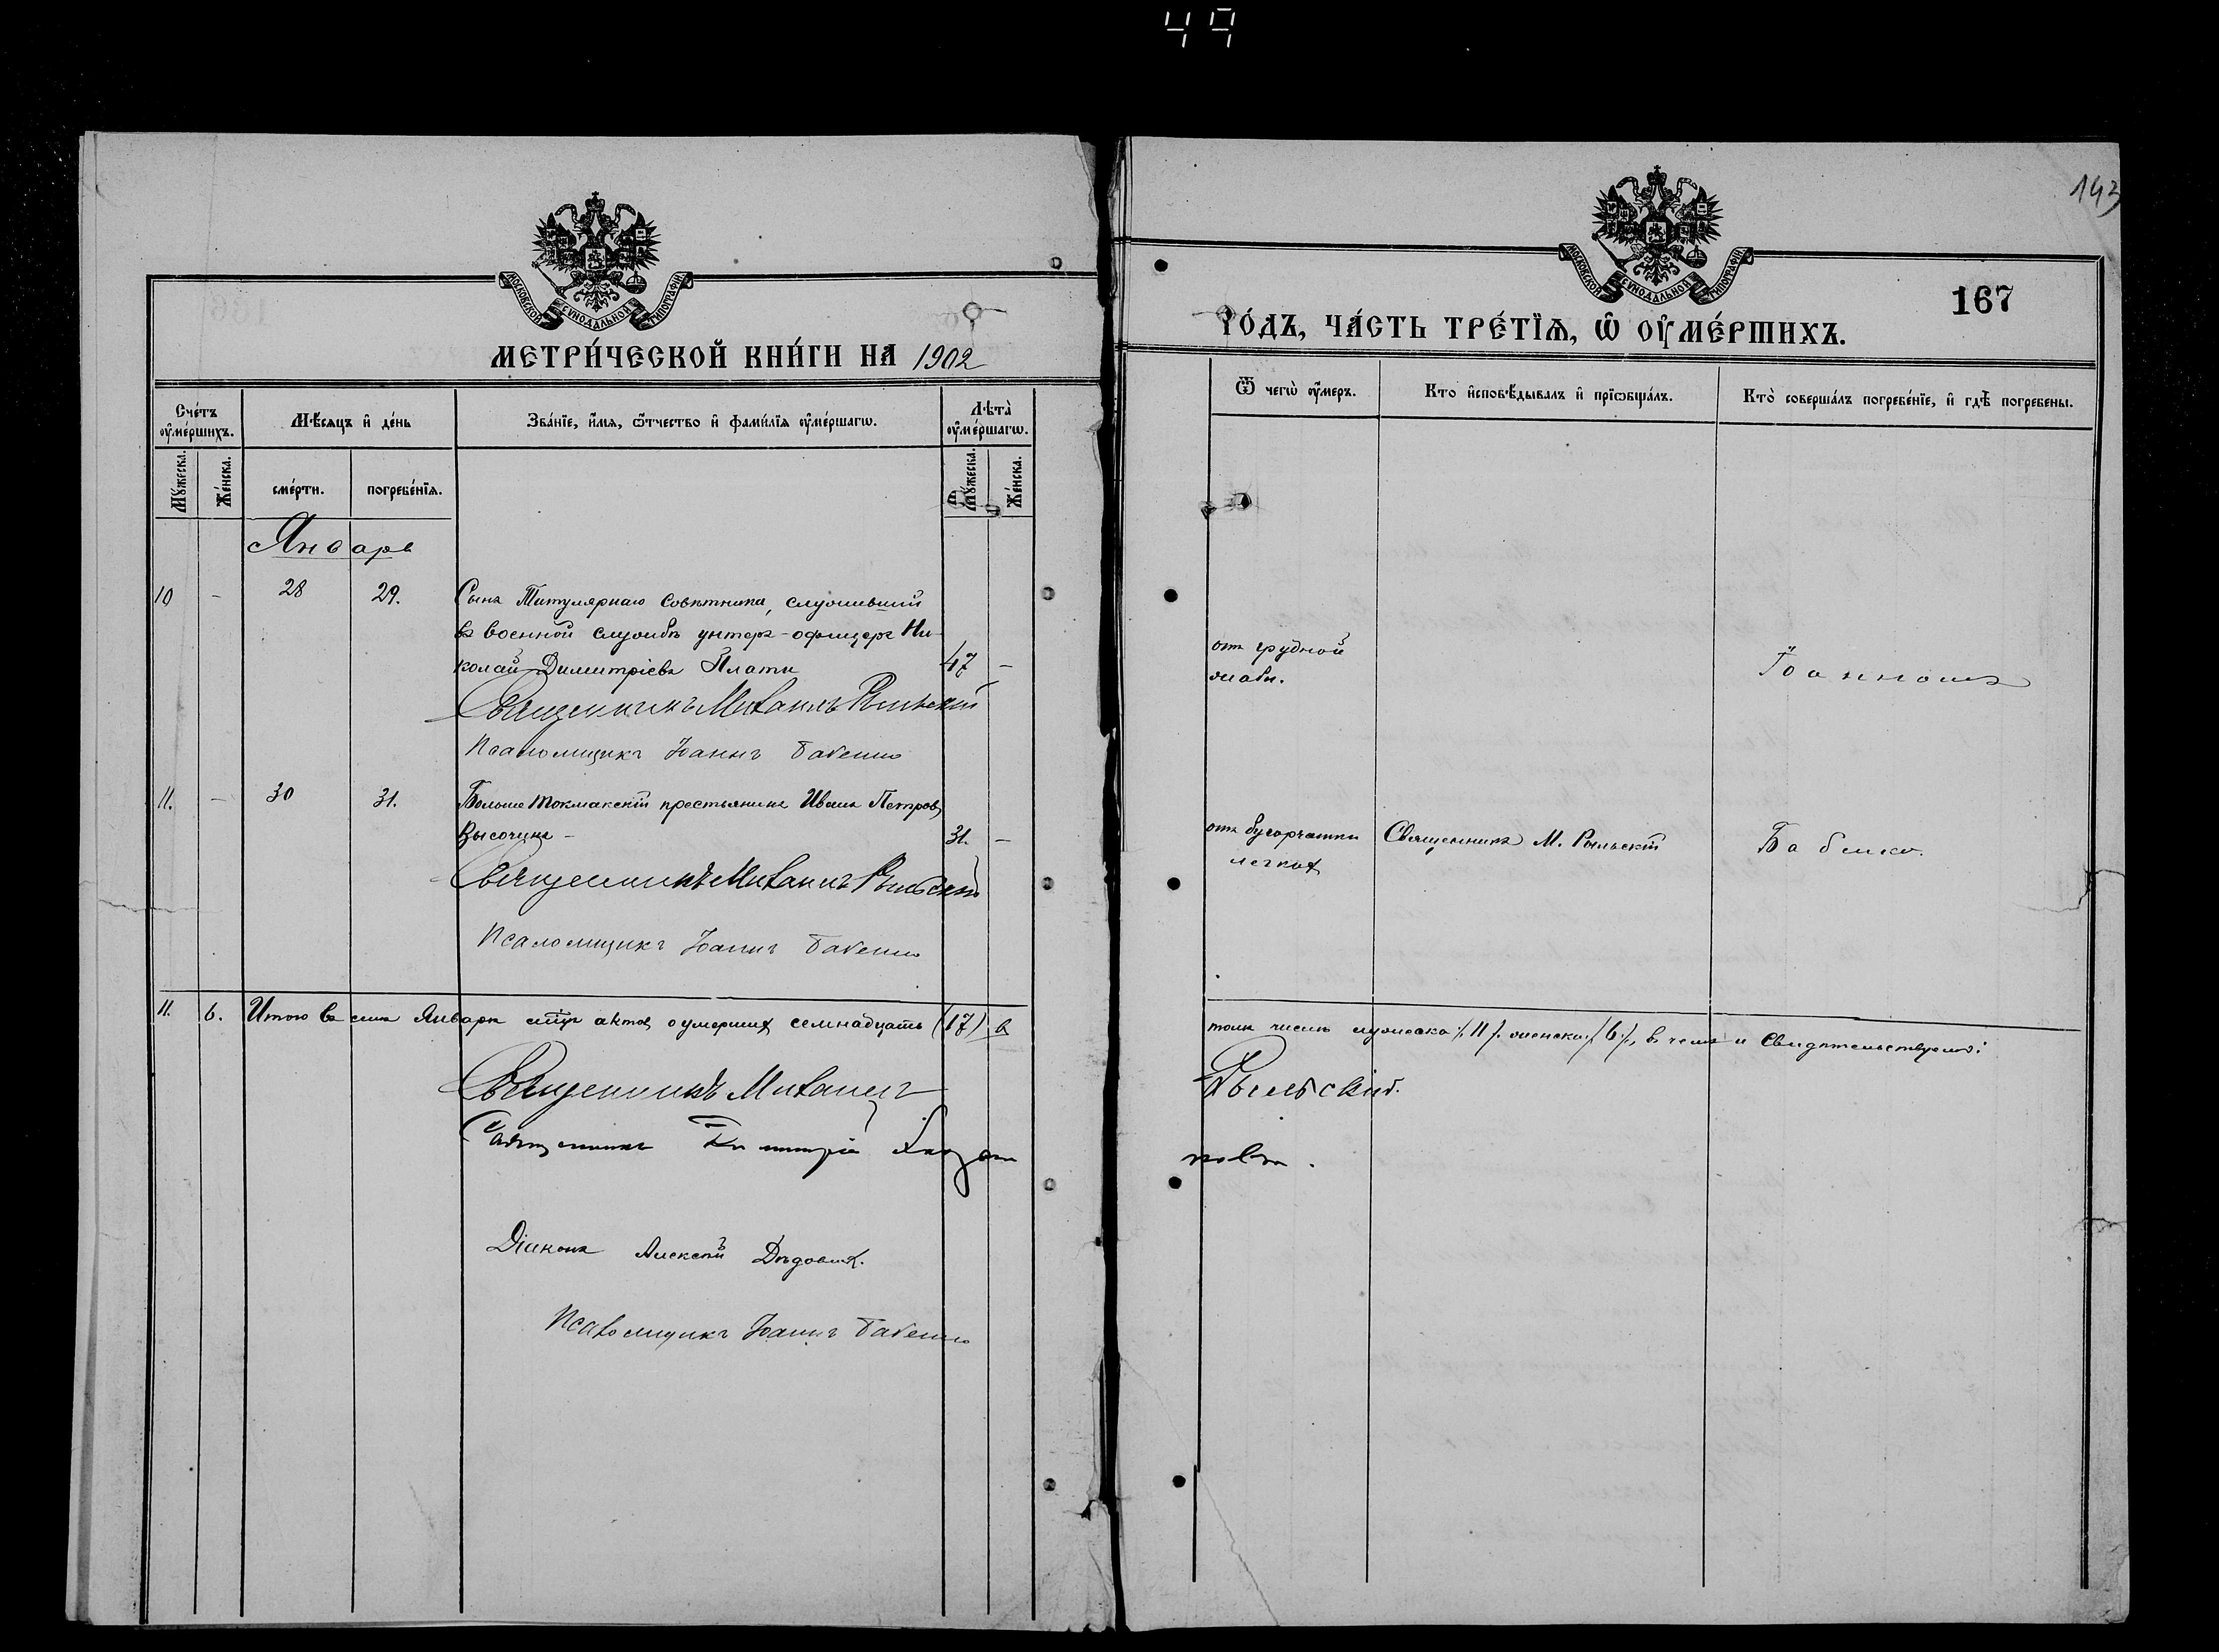 49
143
МОСКОВСКОЙ СѴНОДАЛЬНОЙ ТИПОГРАФІИ
МЕТРИ́ЧЕСКОЙ КНИ́ГИ НА 1902
Сче́тъ ᲂу҆ме́ршихъ.
Мѣ́сѧцъ и҆ де́нь
Зва́нїе, и҆́мѧ, ѻ҆́тчество и҆ фами́лїѧ ᲂу҆ме́ршагѡ.
Лѣ́та ᲂу҆ме́ршагѡ.
Мꙋ́жеска.
Же́нска.
сме́рти.
погребе́нїѧ.
Мꙋ́жеска.
Же́нска.
Январь
10 - 28 29. Сынъ Титулярнаго Совѣтника, служившій
въ военной службѣ унтеръ-офицеръ Ни-
колай Димитріевъ Плати 47 -
Священникъ Михаилъ Рыльскій
Псаломщикъ Іоаннъ Бабенко
11. - 30 31. Больше Токмакскій крестьянинъ Иванъ Петровъ
Высочинъ - 31. -
Священникъ Михаилъ Рыльскій
Псаломщикъ Іоаннъ Бабенко
11. 6. Итого въ семъ Январѣ мѣсяцѣ актовъ о умершихъ семнадцать (17) въ
Священникъ Михаилъ
Священникъ Димитрій
Діаконъ Алексѣй Дѣдовичъ.
Псаломщикъ Іоаннъ Бабенко
МОСКОВСКОЙ СѴНОДАЛЬНОЙ ТИПОГРАФІИ
167
ГО́ДЪ, ЧА́СТЬ ТРЕ́ТЇѦ, Ѡ҆ ОУ҆МЕ́РШИХЪ.
Ѿ чегѡ̀ ᲂу҆́меръ.
Кто̀ и҆сповѣ́дывалъ и҆ прїѡбща́лъ.
Кто̀ соверша́лъ погребе́нїе, и҆ гдѣ̀ погребены.
отъ грудной
жабы.
Іоаннъ
отъ бугорчатки Священникъ М. Рыльскій Бабенко.
легкихъ
томъ числѣ мужеска /11/. женска /6/, въ чемъ и Свидѣтельствуемъ:
Рыльскій.